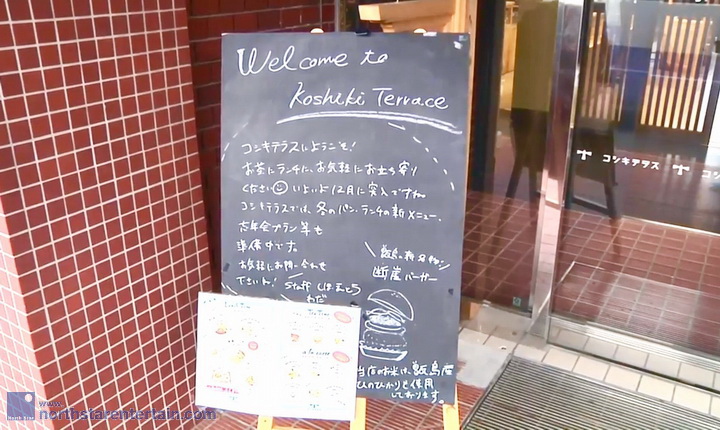 Welcome to
Koshiki Terrace
コシキテラスにようこそ!
お茶にランチに、お気軽にお立ち寄り
ください いよいよ12月に突入ですね
コシキテラスでは、冬のパン、ランチの新メニュー、
忘年会プラン等も
準備中です。
お気軽にお問い合わせ
下さいね! Staff
わだ
断崖バーガー
当店のお米は、甑島産
ひのひかりを使用
しております。
コシキテラス
コシ
www.
northstar-entertain.com